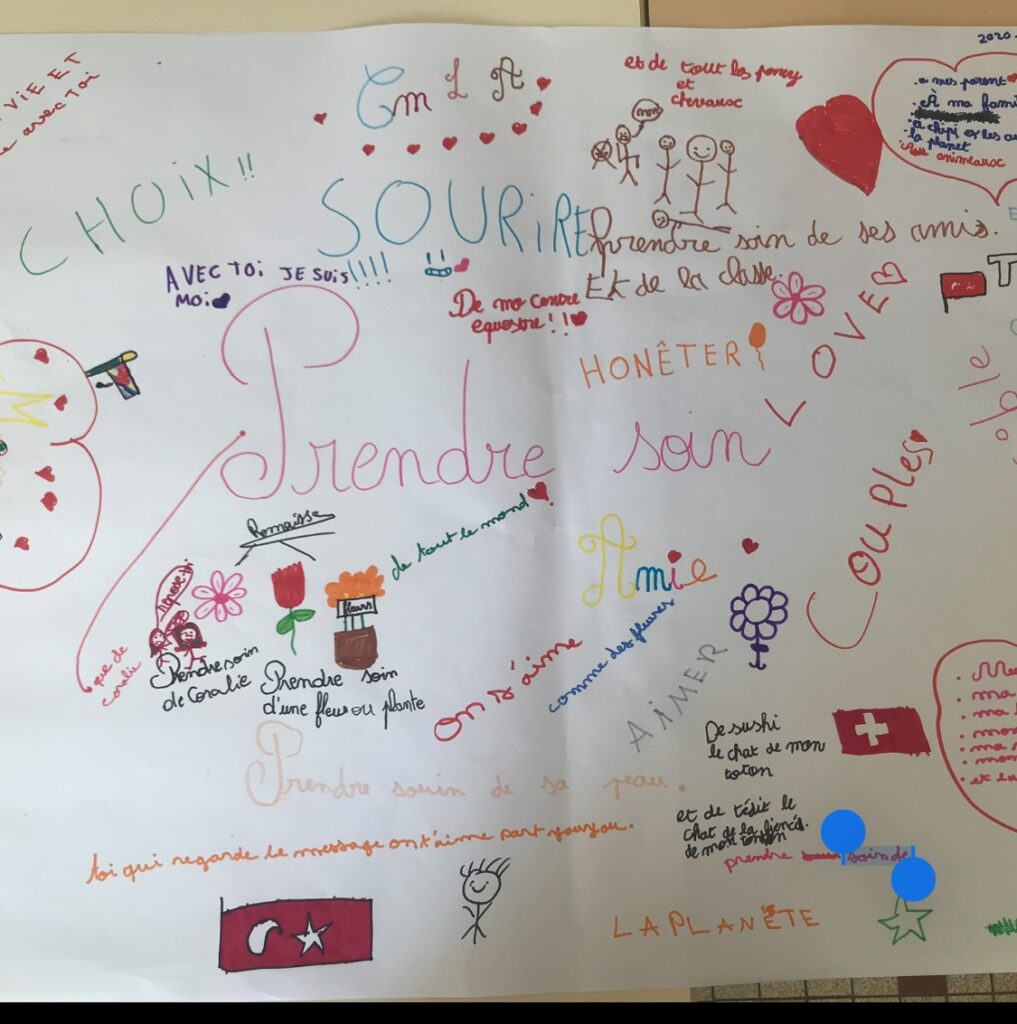 2020
VIE ET
avec toi
Em L A
et de tout les poney
et
chevaroc
mm
a mes parent
À ma fami
la planet
Aux animearoc
CHOIX !!
SOURIRE
Prendre soin de ses amis.
Et de la classe.
AVEC TOi JE SUiS !!!!
MOi
De mo centre
equestre !!
LOVE
T
HONÊTER
M
ble
Prendre soin
COUPLES
Romaissa
de tout le mond
Amie
fleurs
que de
coralie
Prendre soin
de Coralie
Prendre soin
d'une fleur ou plante
on s'aime
comme des fleures
AiMER
De sushi
le chat de mon
toton
Prendre souin de sa peau.
ma
et la
et de tédit le
chat de la fiencés
de mon tonton
prendre soin de
toi qui regarde le message on t'aime part youyou.
LA PLANÈTE